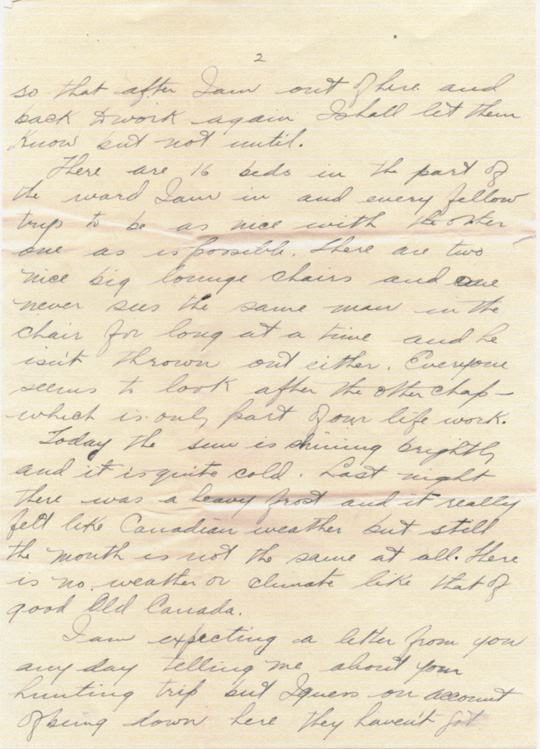 2
so that after I am out of here and
back to work again I shall let them
know but not until.
There are 16 beds in the part of
the ward I am in and every fellow
trys to be as nice with the other
one as is possible. There are two
nice big lounge chairs and one
never sees the same man in the
chair for long at a time and he
isn't thrown out either. Everyone
seems to look after the other chap -
which is only part of our life work.
Today the sun is shining brightly
and it is quite cold. Last night
there was a heavy frost and it really
felt like Canadian weather but still
the month is not the same at all. There
is no weather or climate like that of
good Old Canada.
I am expecting a letter from you
any day telling me about your
hunting trip but I guess on account
of being down here they haven't got